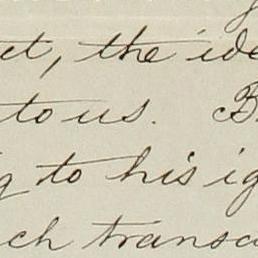 et, the ide
to us. B
g to his ig
ch transc